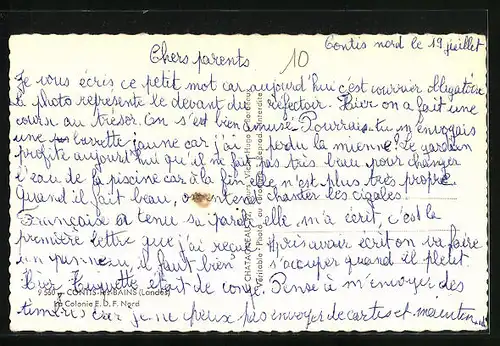 Contis nord le 19 juillet
Chers parents
10
Je vous écris ce petit mot car aujourd'hui c'est courrier obligatoire
la photo représente le devant du réfectoir. Hier on a fait une
course au trésor. On s'est bien amusé. Pourrais-tu m'envoyais
une bavette jaune car j'ai perdu la mienne. Le gardien
profite aujourd'hui qu'il ne fait pas très beau pour changer
l'eau de la piscine car à la fin elle n'est plus très propre.
Quand il fait beau, on entend chanter les cigales.
Française a tenu sa parole elle m'a écrit, c'est la
première lettre que j'ai reçue
après avoir écrit on va faire
un panneau il faut bien s'occuper quand il pleut
Hier Huguette était de congé. Pense à m'envoyer des
timbres car je ne peux pas envoyer de cartes et maintenant
CONTIS-LES-BAINS (Landes)
La Colonie E. D. F. Nord
Véritable Photo au
Reprod. interdite